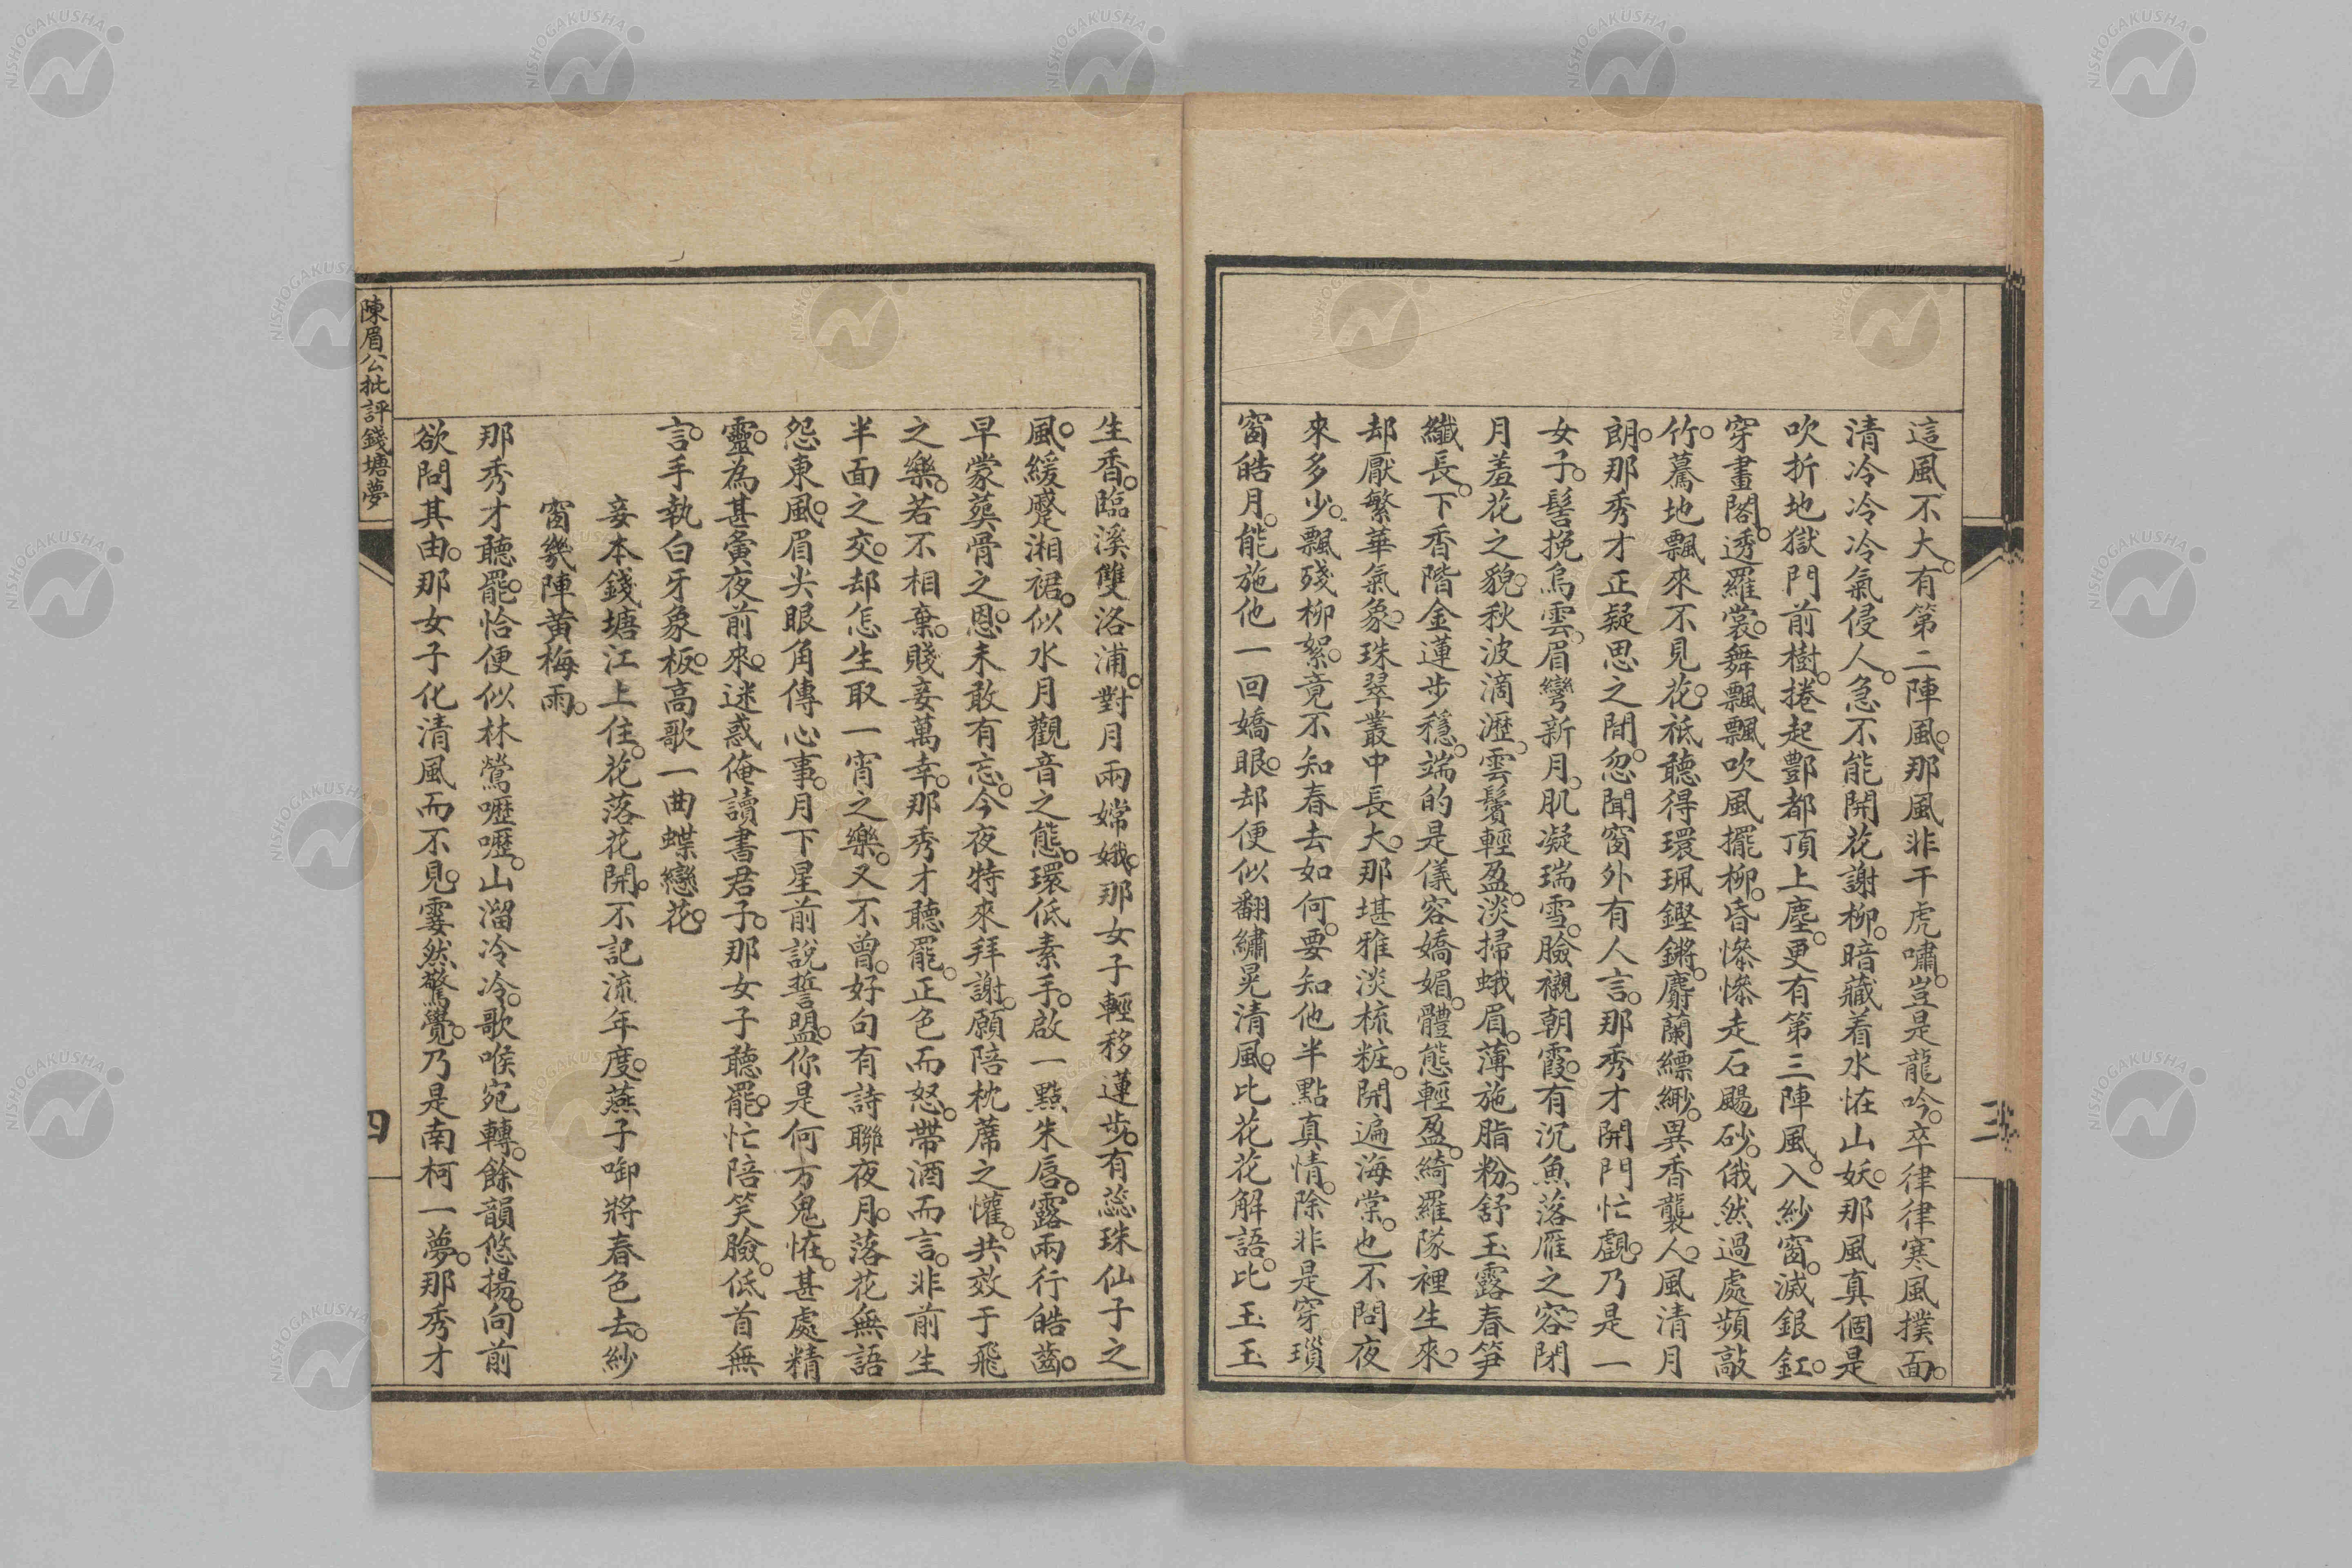 這風不大。有第二陣風。那風非干虎嘯。豈是龍吟。卒律律寒風撲面。
清冷冷冷氣侵人。急不能開花謝柳。暗藏着水怪山妖。那風真個是
吹折地獄門前樹。捲起酆都頂上塵。更有第三陣風。入紗窗。滅銀釭。
穿畫閣。透羅裳。舞飄飄吹風擺柳。昏慘慘走石颺砂。俄然過處頻敲
竹。驀地飄來不見花。祗聽得環珮鏗鏘。麝蘭縹緲。異香襲人。風清月
朗。那秀才正疑思之間。忽聞窗外有人言。那秀才開門忙覷。乃是一
女子。髻挽烏雲。眉彎新月。肌凝瑞雪。臉襯朝霞。有沉魚落雁之容。閉
月羞花之貌。秋波滴瀝。雲鬢輕盈。淡掃蛾眉。薄施脂粉。舒玉露春笋
纖長。下香階金蓮步穩。端的是儀容嬌媚。體態輕盈。綺羅隊裡生來。
却厭繁華氣象。珠翠叢中長大。那堪雅淡梳粧。開遍海棠。也不問夜
來多少。飄殘柳絮。竟不知春去如何。要知他半點真情。除非是穿瑣
窗皓月。能施他一回嬌眼。却便似翻繡晃清風。比花花解語。比玉玉
生香。臨溪雙洛浦。對月兩嫦娥。那女子輕移蓮步。有蕊珠仙子之
風。緩蹙湘裙。似水月觀音之態。環低素手。啟一點朱唇。露兩行皓齒。
早蒙葬骨之恩。未敢有忘。今夜特來拜謝。願陪枕蓆之懽。共效于飛
之樂。若不相棄。賤妾萬幸。那秀才聽罷。正色而怒。帶酒而言。非前生
半面之交。却怎生取一宵之樂。又不曾。好句有詩聯夜月。落花無語
怨東風。眉尖眼角傳心事。月下星前說誓盟。你是何方鬼怪。甚處精
靈。為甚夤夜前來。迷惑俺讀書君子。那女子聽罷。忙陪笑臉。低首無
言。手執白牙象板。高歌一曲蝶戀花。
妾本錢塘江上住。花落花開。不記流年度。燕子啣將春色去。紗
窗幾陣黃梅雨。
那秀才聽罷。恰便似林鶯嚦嚦。山溜冷冷。歌喉宛轉。餘韻悠揚。向前
欲問其由。那女子化清風而不見。霎然驚覺。乃是南柯一夢。那秀才
陳眉公批評錢塘夢
四
NISHOGAKUSHA